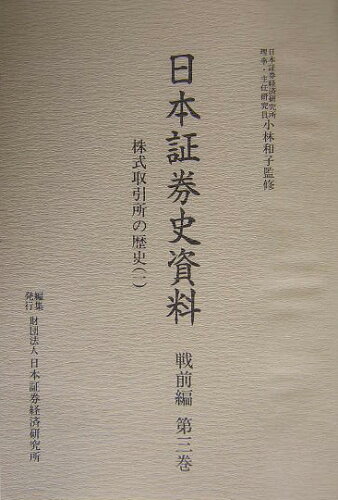 日本証券経済研究所
理事・主任研究員 小林和子監修
日本証券史資料 戦前編 第三巻
株式取引所の歴史(一)
編集
発行 財団法人 日本証券経済研究所